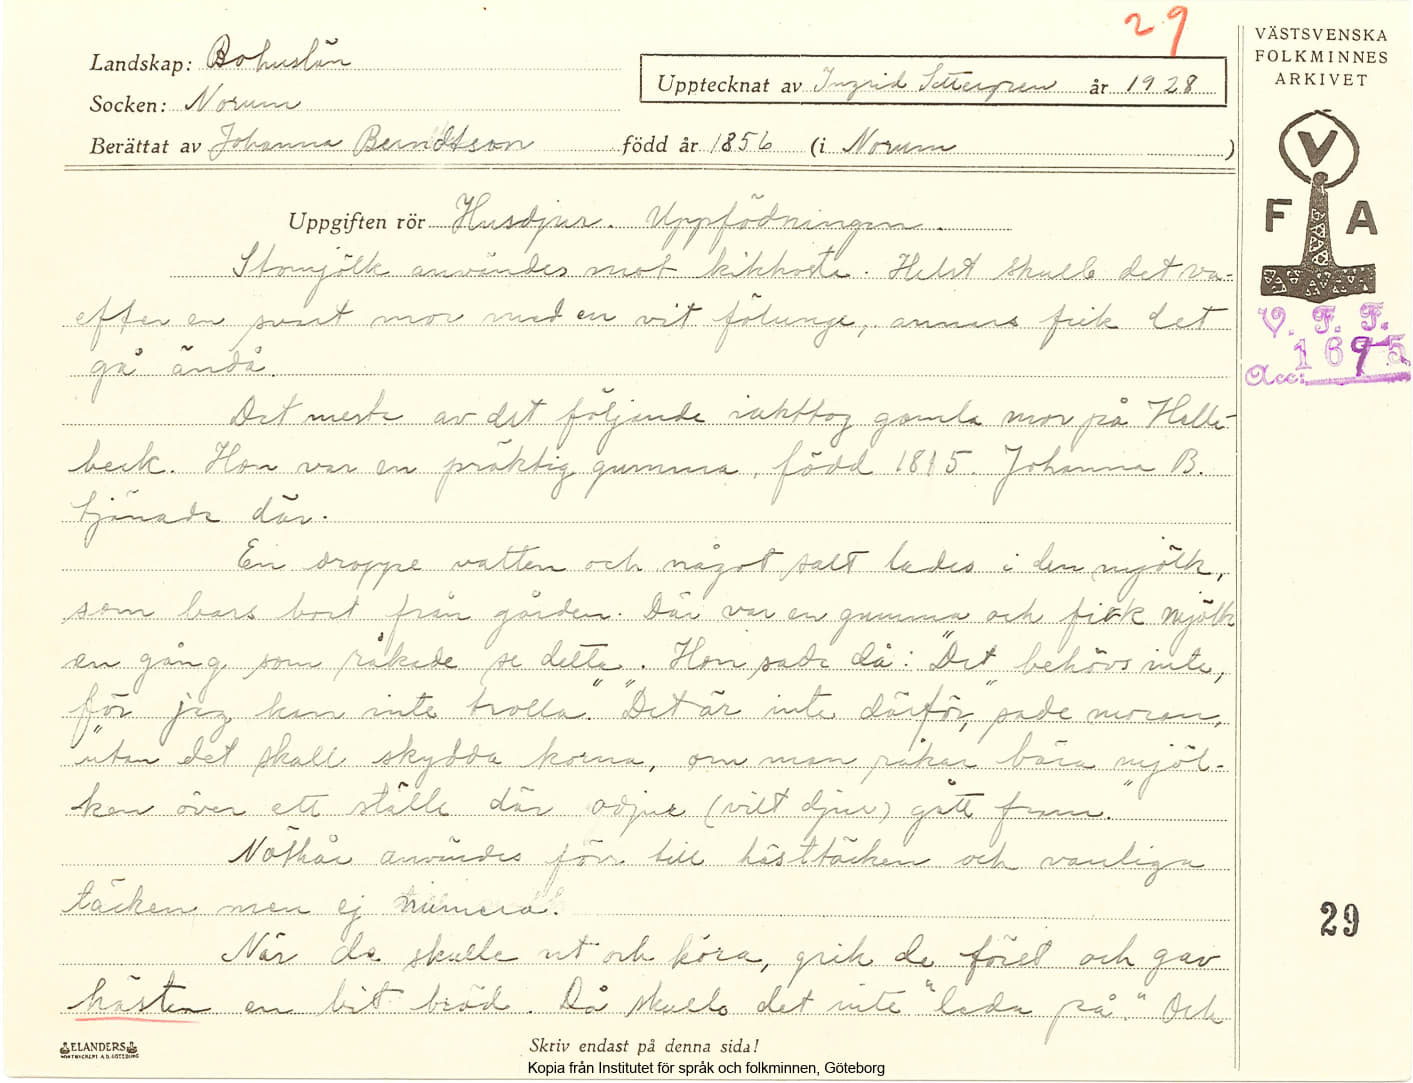 29
Landskap: Bohuslän
Socken: Norum
Berättat av Johanna Berndtson född år 1856 (i Norum )
Upptecknat av Ingrid Settergren år 1928
VÄSTSVENSKA
FOLKMINNES
ARKIVET
V
F A
V. F. F.
1695
Acc:
Uppgiften rör Husdjur. Uppfödningen.
Stomjölk användes mot kikhosta. Helst skulle det va-
efter en svart mor med en vit fölunge, annars fick det
gå ändå.
Det mesta av det följande iakttog gamla mor på Hälle-
beck. Hon var en präktig gumma, född 1815. Johanna B.
tjänade där.
En droppe vatten och något salt lades i den mjölk,
som bars bort från gården. Där var en gumma och fick mjölk
en gång, som råkade se detta. Hon sade då: "Det behövs inte,
för jag kan inte trolla." "Det är inte därför," sade moran,
"utan det skall skydda korna, om man råkar bära mjöl-
ken över ett ställe där odjur (vilt djur) gått fram."
Nöthår användes förr till hästtäcken och vanliga
täcken men ej numera.
När de skulle ut och köra, gick de först och gav
hästen en bit bröd. Då skulle det inte "lada på." Och
29
ELANDERS
Skriv endast på denna sida!
Kopia från Institutet för språk och folkminnen, Göteborg